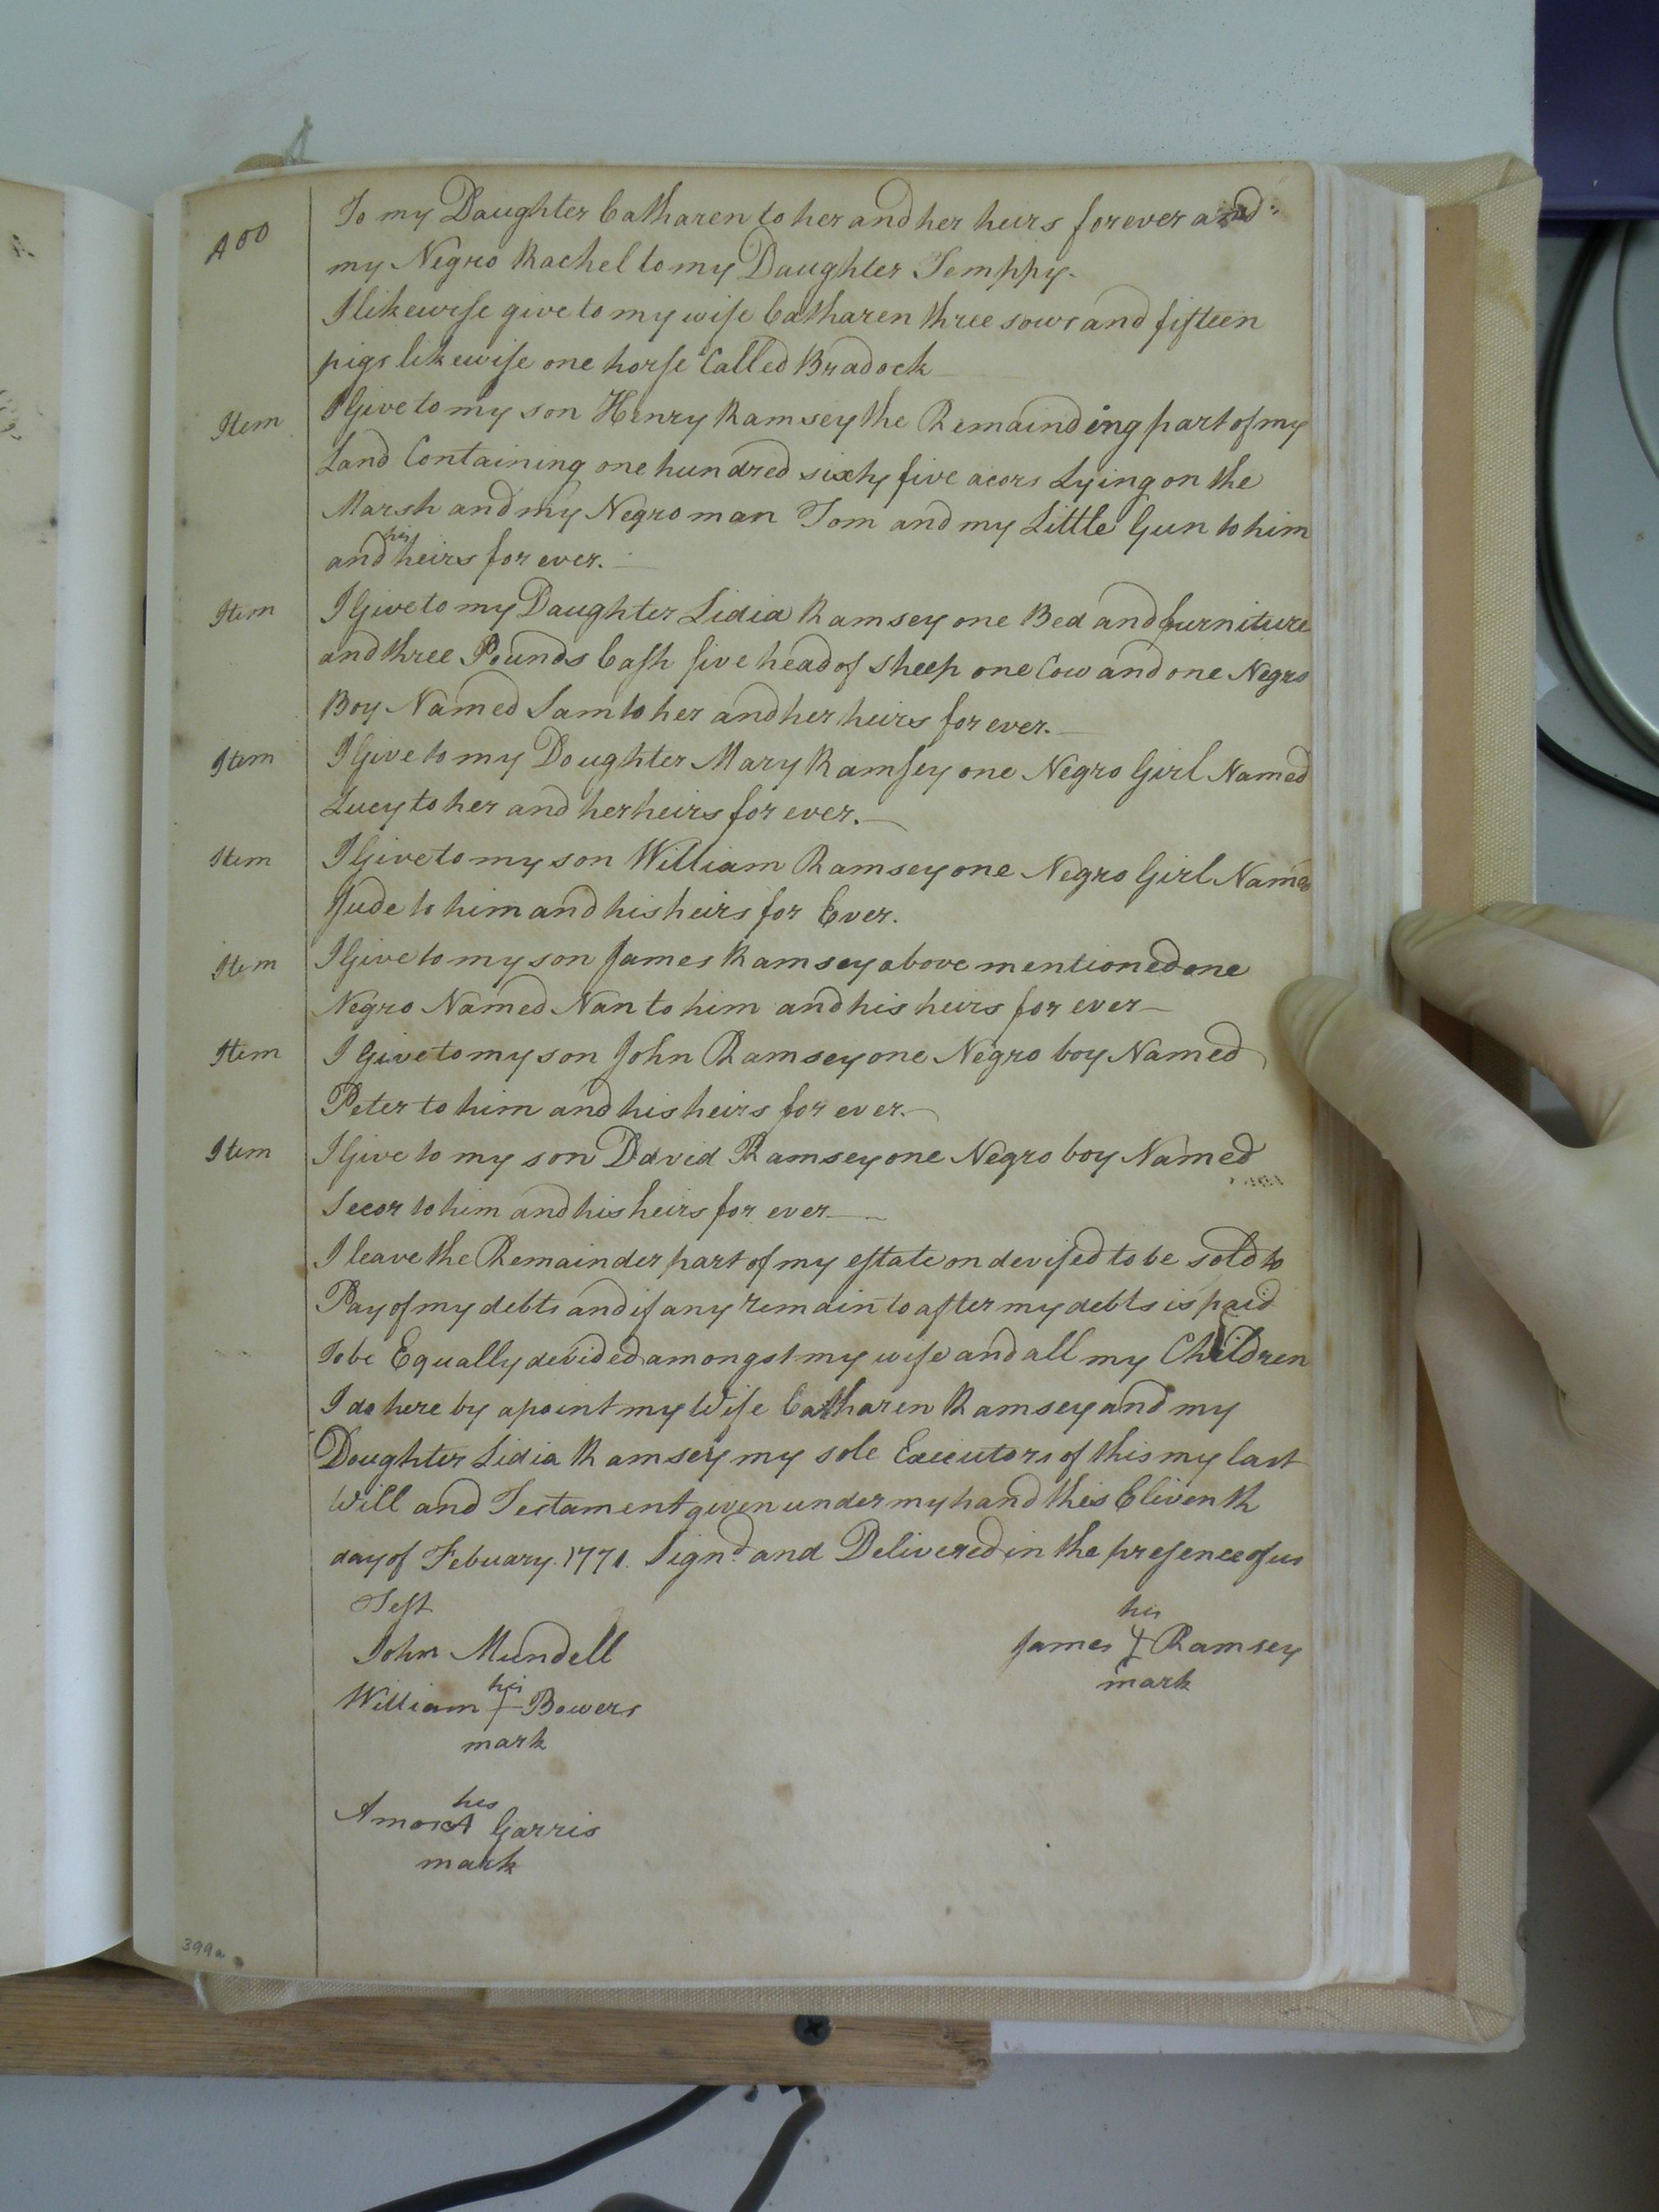 400
To my Daughter Catharen to her and her heirs forever and
my Negro Rachel to my Daughter Temppy.
I likewise give to my wife Catharen three sows and fifteen
pigs likewise one horse Called Bradock
Item I Give to my son Henry Ramsey the Remainding part of my
Land Containing one hundred sixty five acors Lying on the
Marsh and my Negro man Tom and my Little Gun to him
and his heirs for ever.
Item I Give to my Daughter Lidia Ramsey one Bed and furniture
and three Pounds Cash five head of sheep one Cow and one Negro
Boy Named Sam to her and her heirs for ever.
Item I Give to my Doughter Mary Ramsey one Negro Girl Named
Lucy to her and her heirs for ever.
Item I Give to my son William Ramsey one Negro Girl Named
Jude to him and his heirs for Ever.
Item I Give to my son James Ramsey above mentioned one
Negro Named Nan to him and his heirs for ever
Item I Give to my son John Ramsey one Negro boy Named
Peter to him and his heirs for ever.
Item I Give to my son David Ramsey one Negro boy Named
to him and his heirs for ever
I leave the Remainder part of my estate on devised to be sold to
Pay of my debts and if any remain to after my debts is paid
To be Equally devided amongst my wife and all my Children
I do here by apoint my Wife Catharen Ramsey and my
Doughter Lidia Ramsey my sole Executors of this my last
Will and Testament given under my hand this Eleventh
day of Febuary. 1771. Signd and Delivered in the presence of us
Test
his
John Mundell James Ramsey
his mark
William Bowers
mark
his
Amos A Garris
mark
399a